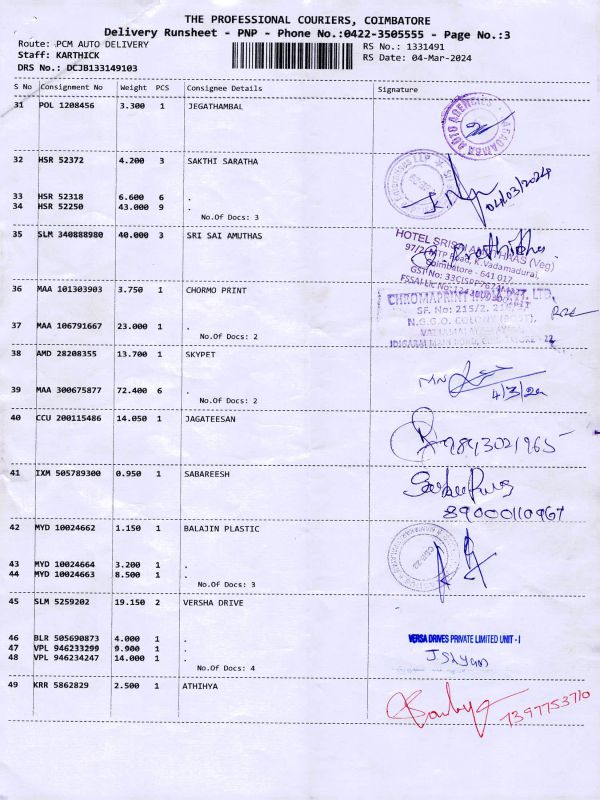 THE PROFESSIONAL COURIERS, COIMBATORE
Delivery Runsheet - PNP - Phone No.:0422-3505555 - Page No.:3
Route: PCM AUTO DELIVERY
RS No.: 1331491
Staff: KARTHICK
RS Date: 04-Mar-2024
DRS No.: DCJB133149103
S No Consignment No Weight PCS Consignee Details Signature
31 POL 1208456 3.300 1 JEGATHAMBAL
32 HSR 52372 4.200 3 SAKTHI SARATHA
04/03/2024
33 HSR 52318 6.600 6 .
34 HSR 52250 43.000 9 .
No.Of Docs: 3
35 SLM 340888980 40.000 3 SRI SAI AMUTHAS
36 MAA 101303903 3.750 1 CHORMO PRINT
37 MAA 106791667 23.000 1 .
No.Of Docs: 2
38 AMD 28208355 13.700 1 SKYPET
4/3/24
39 MAA 300675877 72.400 6 .
No.Of Docs: 2
40 CCU 200115486 14.050 1 JAGATEESAN
9843021965
41 IXM 505789300 0.950 1 SABAREESH
89000110967
42 MYD 10024662 1.150 1 BALAJIN PLASTIC
43 MYD 10024664 3.200 1 .
44 MYD 10024663 8.500 1 .
No.Of Docs: 3
45 SLM 5259202 19.150 2 VERSHA DRIVE
46 BLR 505690873 4.000 1 .
VERSA DRIVES PRIVATE LIMITED UNIT - I
47 VPL 946233299 9.900 1 .
48 VPL 946234247 14.000 1 .
No.Of Docs: 4
49 KRR 5862829 2.500 1 ATHIHYA